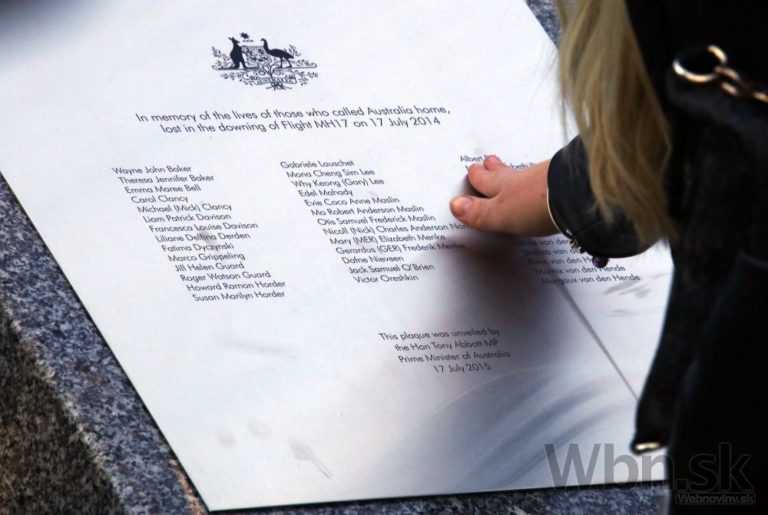 In memory of the lives of those who called Australia home,
lost in the downing of Flight MH17 on 17 July 2014
Wayne John Baker
Theresa Jennifer Baker
Emma Maree Bell
Carol Clancy
Michael (Mick) Clancy
Liam Patrick Davison
Francesca Louise Davison
Liliane Dellina Derden
Fatima Dyczynski
Marco Grippeling
Jill Helen Guard
Roger Watson Guard
Howard Ramon Horder
Susan Marilyn Horder
Gabriele Lauschet
Mona Cheng Sim Lee
Why Keong (Gary) Lee
Edel Mahady
Evie Coco Anne Maslin
Mo Robert Anderson Maslin
Otis Samuel Frederick Maslin
Nicoll (Nick) Charles Anderson Norris
Mary (MER) Elizabeth Menke
Gerardus (GER) Frederik Menke
Dafne Nieveen
Jack Samuel O'Brien
Victor Oreshkin
Albert
van den Hende
Marnix van den Hende
Margaux van den Hende
This plaque was unveiled by
the Hon Tony Abbott MP
Prime Minister of Australia
17 July 2015
Wbn.sk
Webnoviny.sk